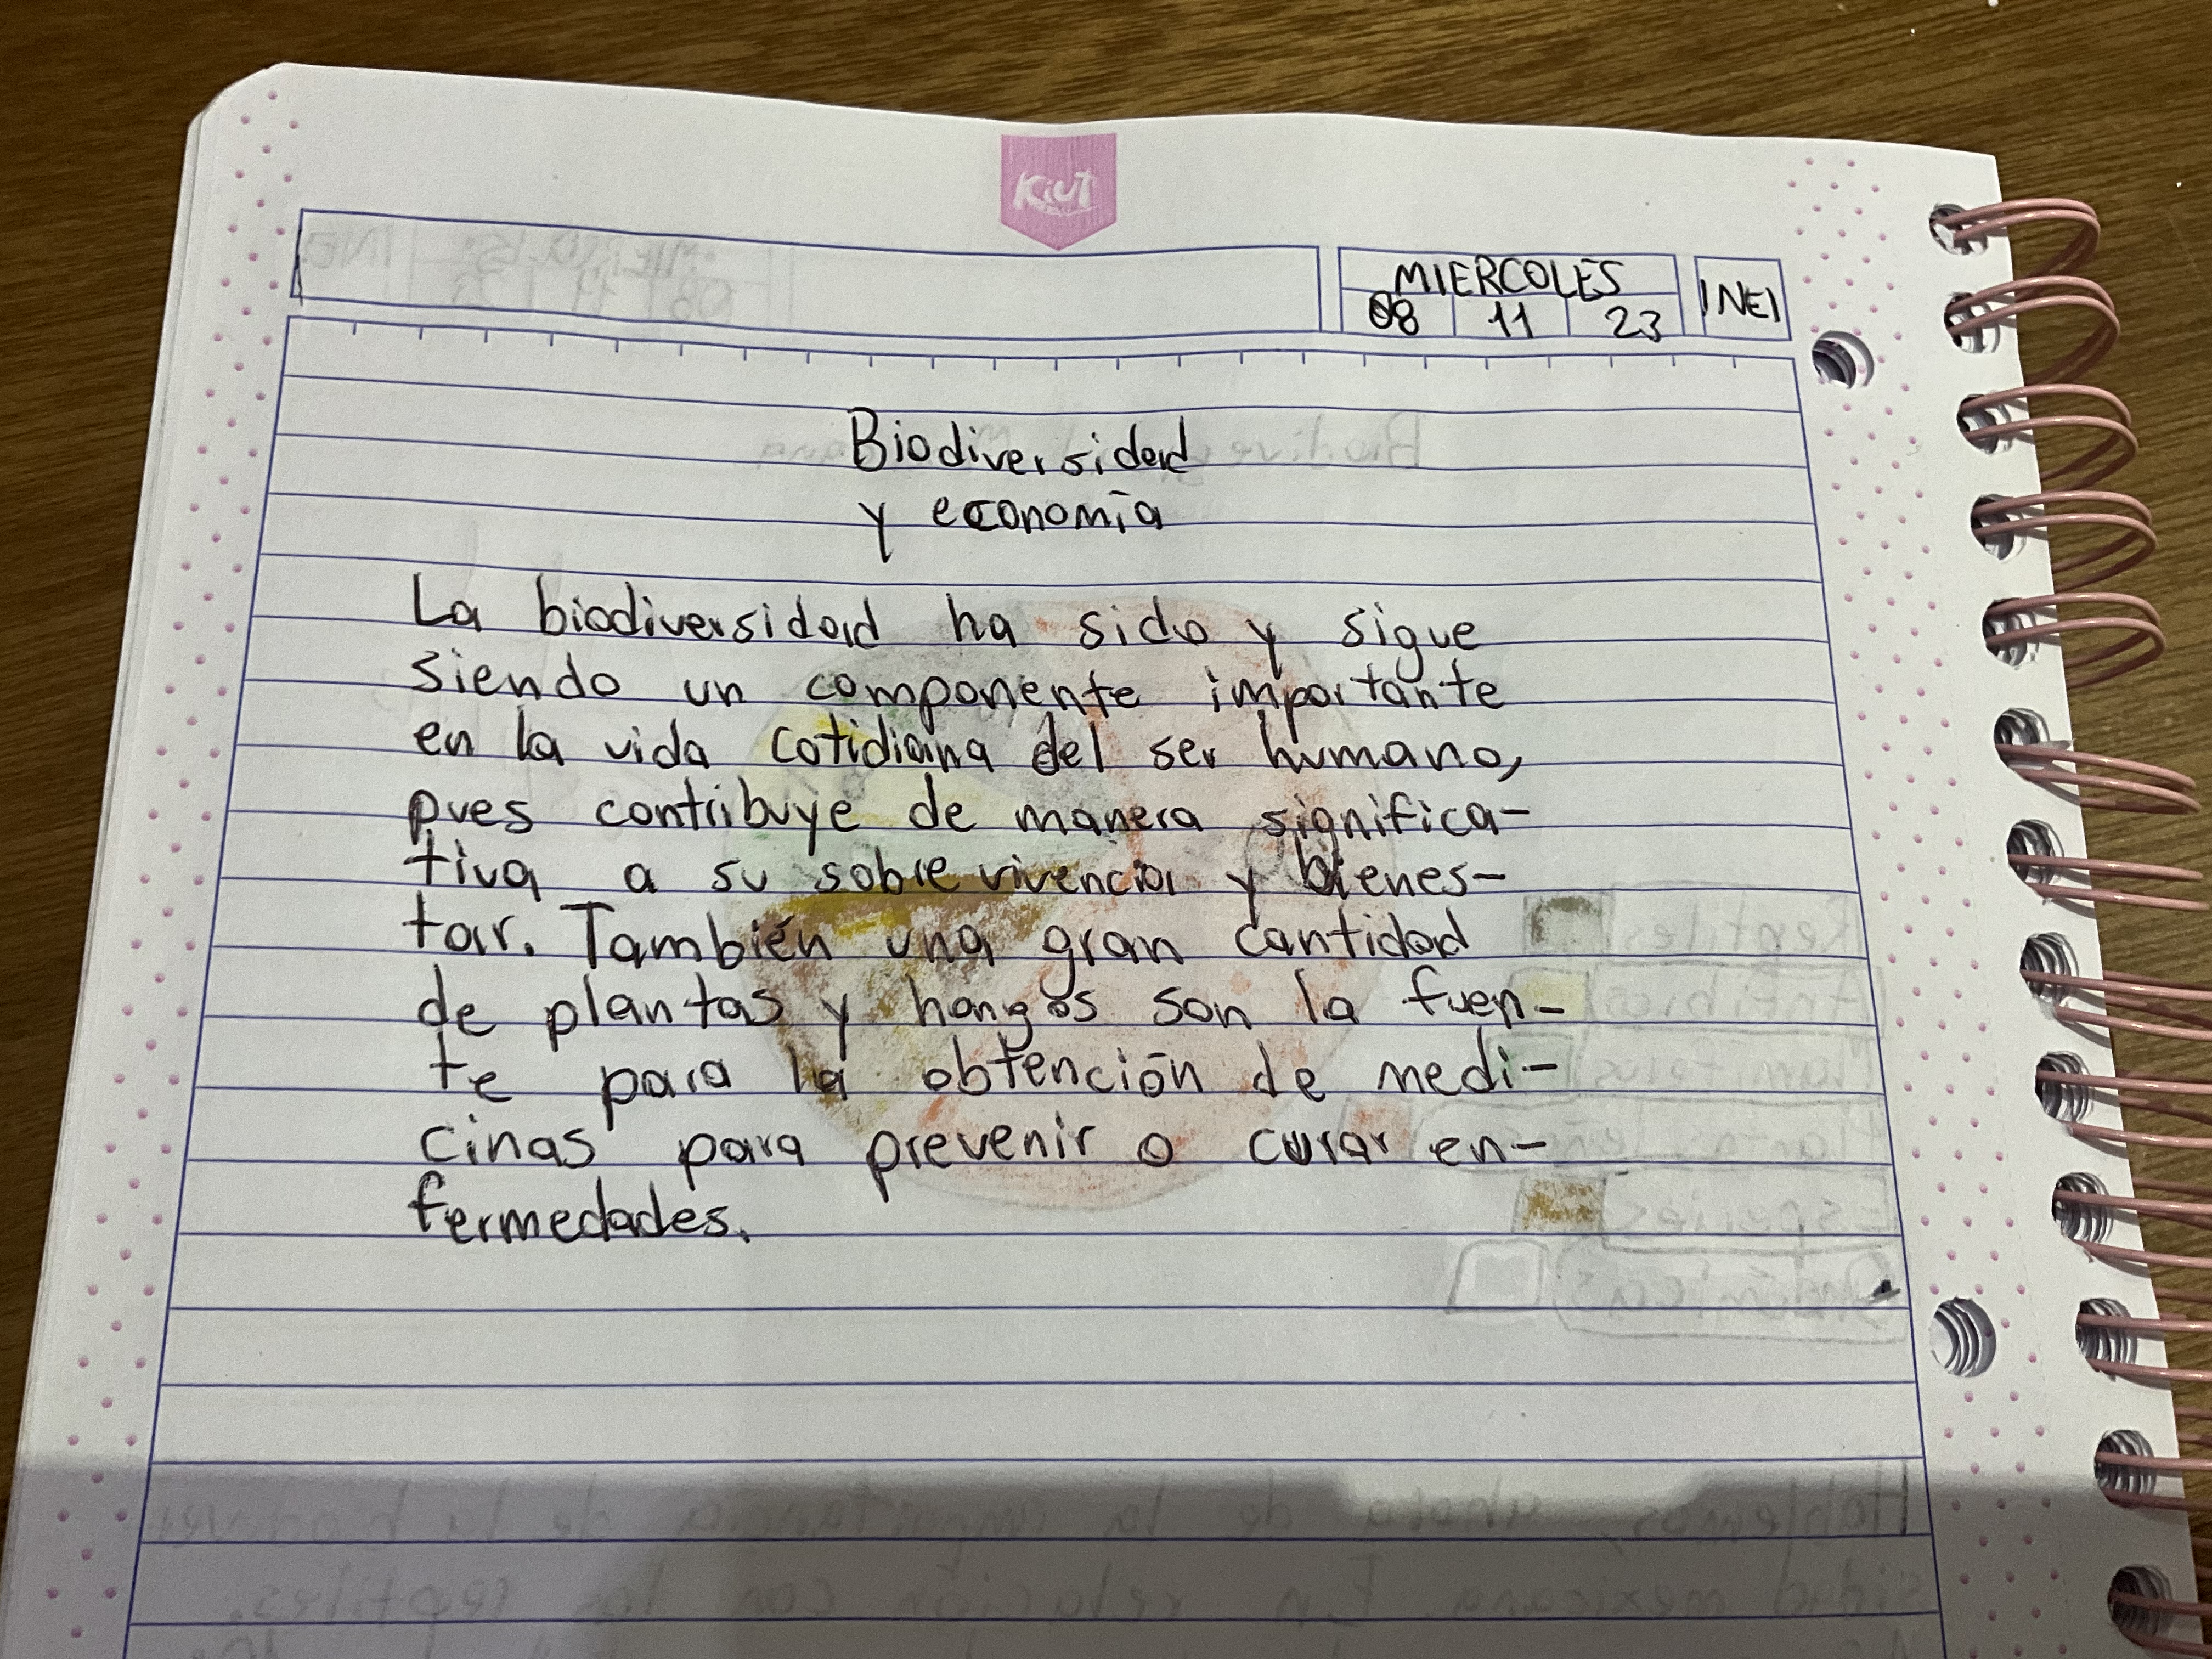 Kiut
MIERCOLES
08 11 23
INEI
Biodiversidad
y economía
La biodiversidad ha sido y sigue
siendo un componente importante
en la vida cotidiana del ser humano,
pues contribuye de manera significa-
tiva a su sobrevivencia y bienes-
tar. También una gran cantidad
de plantas y hongos son la fuen-
te para la obtención de medi-
cinas para prevenir o curar en-
fermedades.